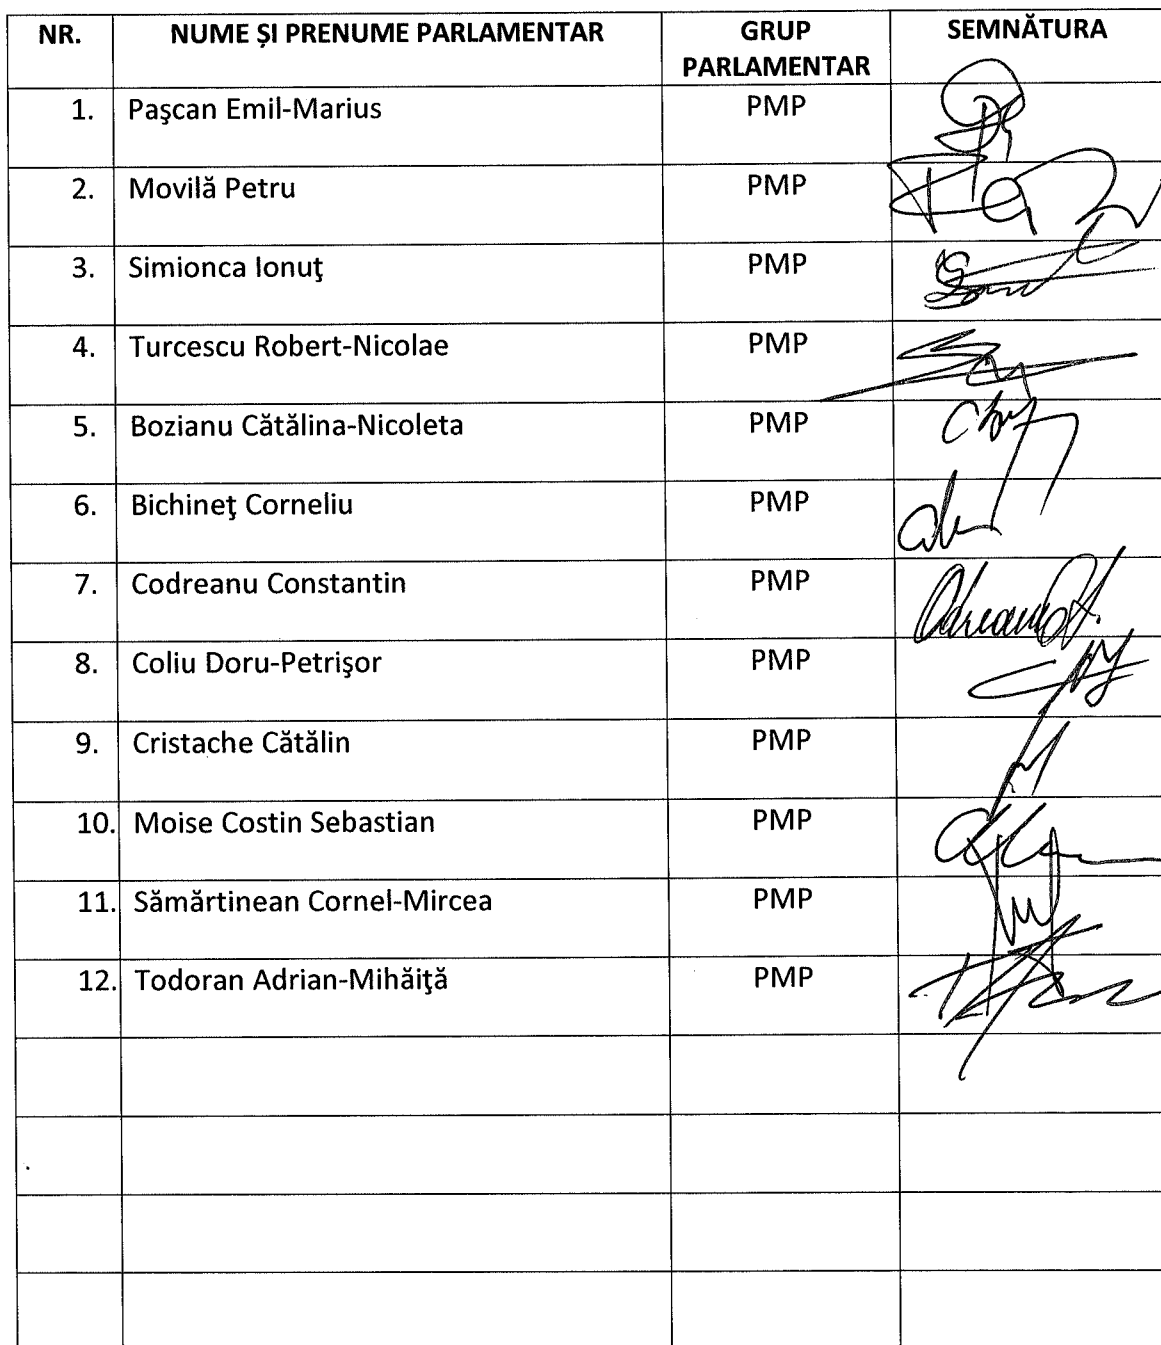 NR. NUME ȘI PRENUME PARLAMENTAR GRUP PARLAMENTAR SEMNĂTURA
1. Paşcan Emil-Marius PMP
2. Movilă Petru PMP
3. Simionca Ionuţ PMP
4. Turcescu Robert-Nicolae PMP
5. Bozianu Cătălina-Nicoleta PMP
6. Bichineţ Corneliu PMP
7. Codreanu Constantin PMP
8. Coliu Doru-Petrişor PMP
9. Cristache Cătălin PMP
10. Moise Costin Sebastian PMP
11. Sămărtinean Cornel-Mircea PMP
12. Todoran Adrian-Mihăiţă PMP